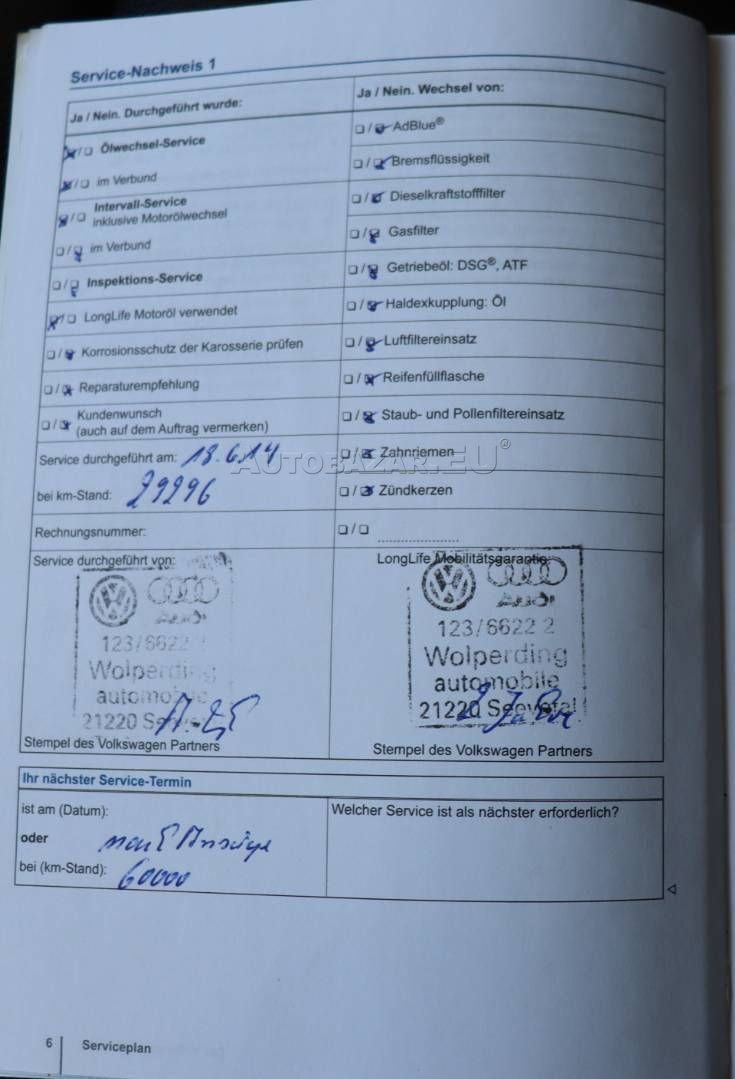 Service-Nachweis 1
Ja / Nein. Durchgeführt wurde:
Ölwechsel-Service
im Verbund
Intervall-Service
inklusive Motorölwechsel
im Verbund
Inspektions-Service
LongLife Motoröl verwendet
Korrosionsschutz der Karosserie prüfen
Reparaturempfehlung
Kundenwunsch
(auch auf dem Auftrag vermerken)
Service durchgeführt am: 18.6.14
bei km-Stand: 29296
Rechnungsnummer:
Ja / Nein. Wechsel von:
AdBlue®
Bremsflüssigkeit
Dieselkraftstofffilter
Gasfilter
Getriebeöl: DSG®, ATF
Haldexkupplung: Öl
Luftfiltereinsatz
Reifenfüllflasche
Staub- und Pollenfiltereinsatz
Zahnriemen
Zündkerzen
AUTOBAZAR.EU®
Service durchgeführt von:
Audi
123/6622
Wolperding
automobile
21220
Stempel des Volkswagen Partners
LongLife Mobilitätsgarantie
Audi
123/6622 2
Wolperding
automobile
21220 Seevetal
Stempel des Volkswagen Partners
Ihr nächster Service-Termin
ist am (Datum):
oder
bei (km-Stand): 60000
Welcher Service ist als nächster erforderlich?
6 Serviceplan